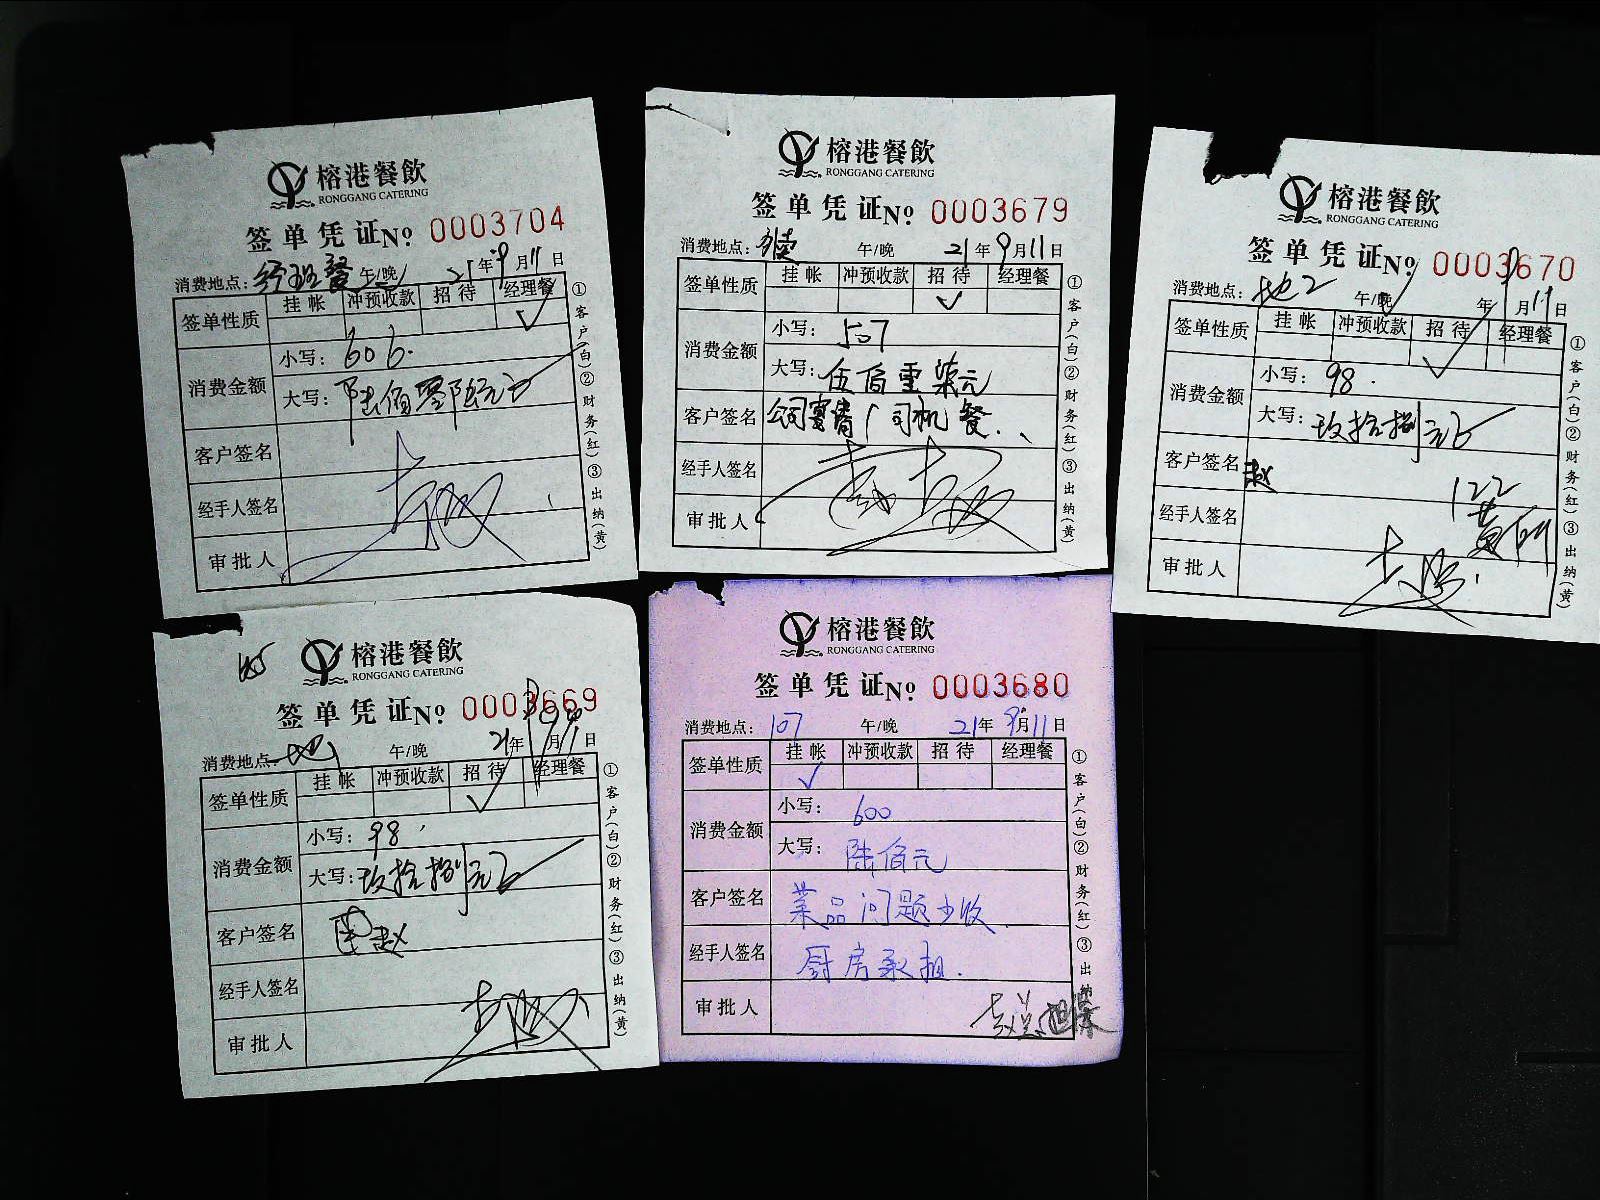 榕港餐飲
RONGGANG CATERING
签单凭证 No 0003704
消费地点: 午/晚 21年9月11日
签单性质 挂帐 冲预收款 招待 经理餐
✓
消费金额 小写: 606.
大写: 陆佰零陆元正
客户签名
经手人签名
审批人
①客户(白)②财务(红)③出纳(黄)
榕港餐飲
RONGGANG CATERING
签单凭证 No 0003679
消费地点: 午/晚 21年9月11日
签单性质 挂帐 冲预收款 招待 经理餐
✓
消费金额 小写: 507
大写: 伍佰零柒元
客户签名 公司宴请/司机餐.
经手人签名
审批人
①客户(白)②财务(红)③出纳(黄)
榕港餐飲
RONGGANG CATERING
签单凭证 No 0003670
消费地点: 地2 午/晚 年9月11日
签单性质 挂帐 冲预收款 招待 经理餐
✓
消费金额 小写: 98.
大写: 玖拾捌元正
客户签名 赵
122
经手人签名
审批人
①客户(白)②财务(红)③出纳(黄)
榕港餐飲
RONGGANG CATERING
签单凭证 No 0003669
消费地点: 午/晚 21年9月11日
签单性质 挂帐 冲预收款 招待 经理餐
✓
消费金额 小写: 98
大写: 玖拾捌元正
客户签名 赵
经手人签名
审批人
①客户(白)②财务(红)③出纳(黄)
榕港餐飲
RONGGANG CATERING
签单凭证 No 0003680
消费地点: 107 午/晚 21年9月11日
签单性质 挂帐 冲预收款 招待 经理餐
✓
消费金额 小写: 600
大写: 陆佰元
客户签名 菜品问题少收
经手人签名 厨房承担.
审批人 担保
①客户(白)②财务(红)③出纳(黄)